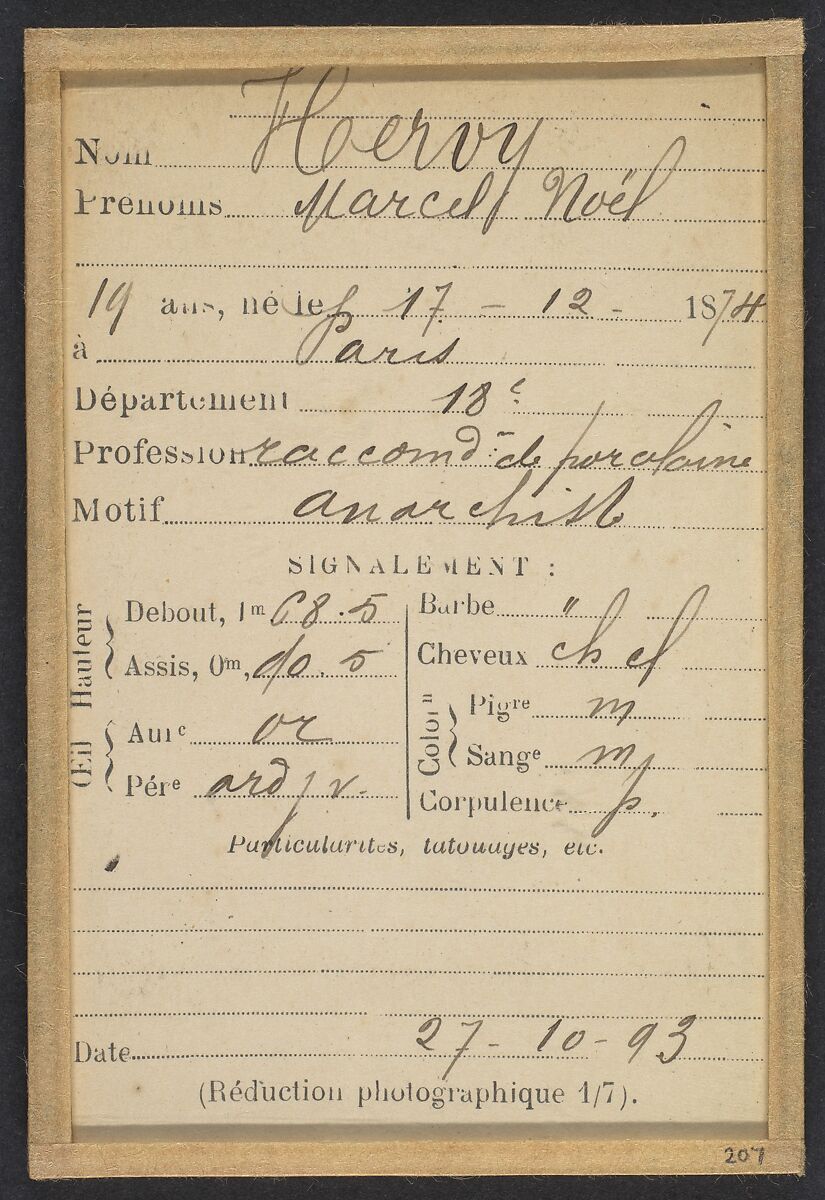 Nom Hervy
Prénoms Marcel Noël
19 ans, né le 17 - 12 - 1874
à Paris
Département 18e
Profession raccomd.r de porcelaine
Motif anarchiste
SIGNALEMENT :
Hauteur
Debout, 1m 68.5
Assis, 0m, 90.5
Œil
Aure or
Pére ard v.
Barbe "
Cheveux ch cl
Colorn
Pigre m
Sange m
Corpulence p.
Particularités, tatouages, etc.
Date 27 - 10 - 93
(Réduction photographique 1/7).
207